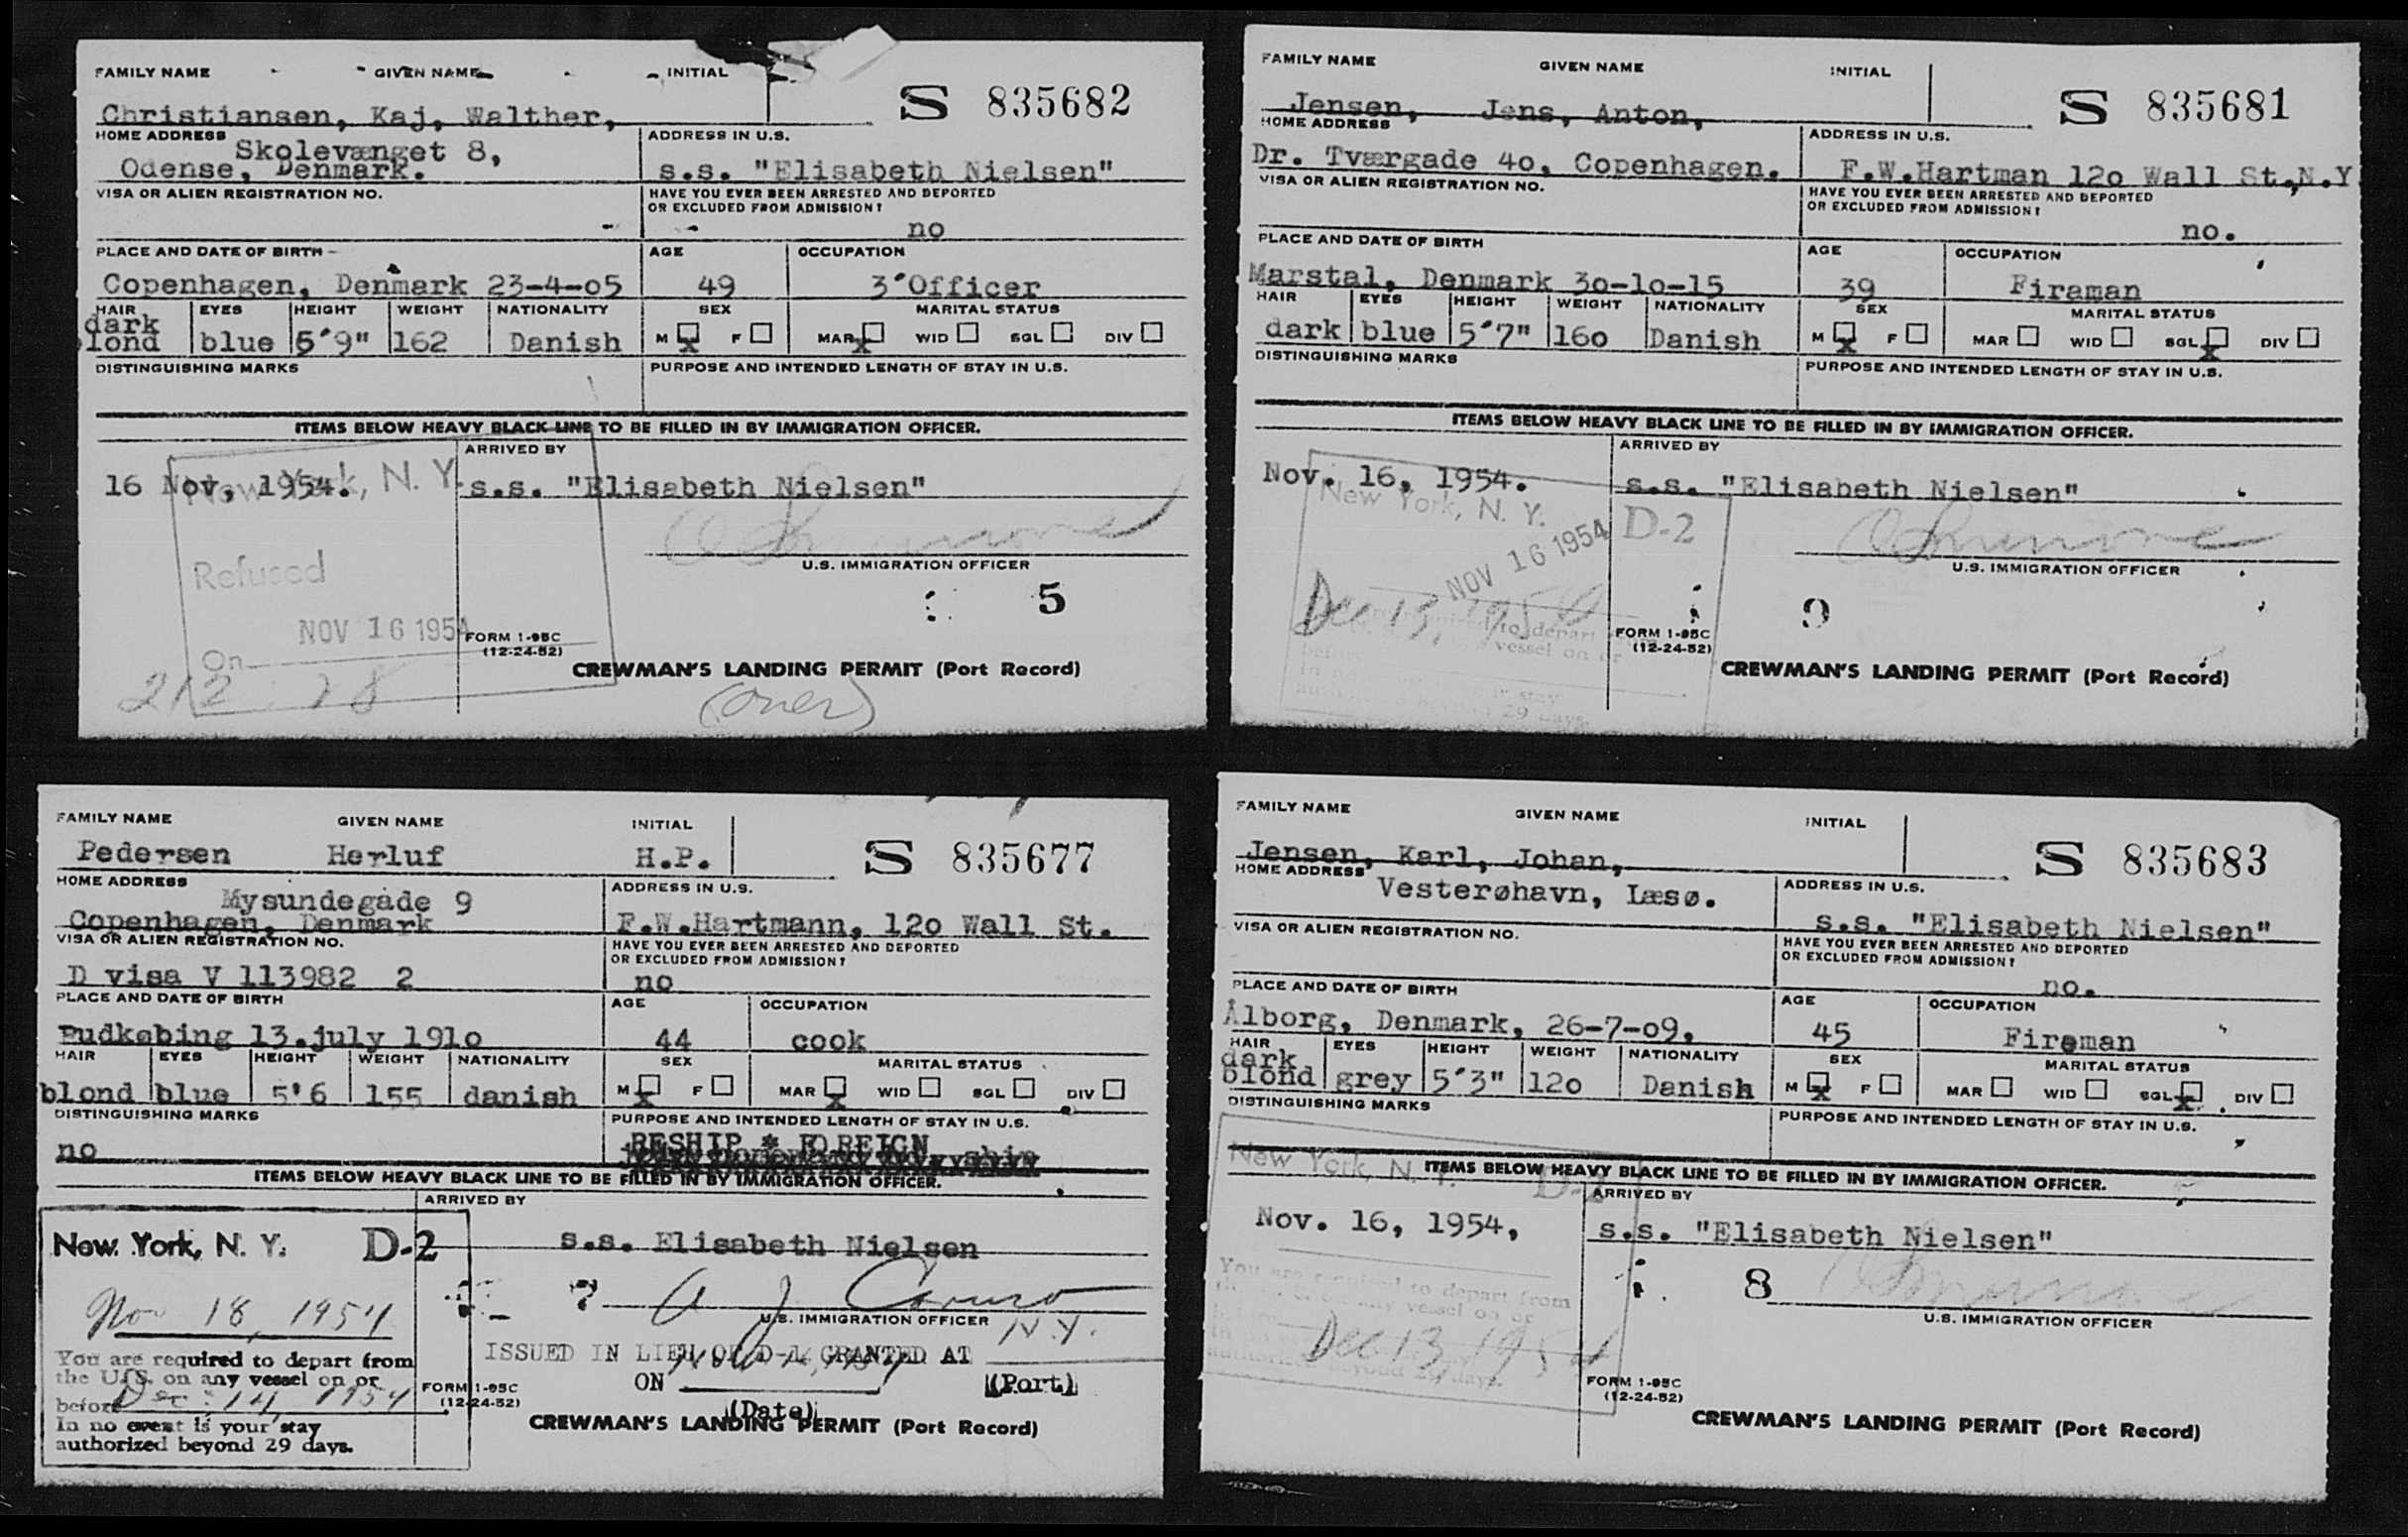 FAMILY NAME GIVEN NAME INITIAL
S 835682
Christiansen, Kaj, Walther,
HOME ADDRESS ADDRESS IN U.S.
Skolevænget 8,
Odense, Denmark. s.s. "Elisabeth Nielsen"
VISA OR ALIEN REGISTRATION NO. HAVE YOU EVER BEEN ARRESTED AND DEPORTED
OR EXCLUDED FROM ADMISSION?
no
PLACE AND DATE OF BIRTH AGE OCCUPATION
Copenhagen, Denmark 23-4-05 49 3'Officer
HAIR EYES HEIGHT WEIGHT NATIONALITY SEX MARITAL STATUS
dark
blond blue 5'9" 162 Danish M X F MAR X WID SGL DIV
DISTINGUISHING MARKS PURPOSE AND INTENDED LENGTH OF STAY IN U.S.
ITEMS BELOW HEAVY BLACK LINE TO BE FILLED IN BY IMMIGRATION OFFICER.
ARRIVED BY
16 Nov, 1954. s.s. "Elisabeth Nielsen"
New York, N. Y.
U.S. IMMIGRATION OFFICER
Refused
5
NOV 16 1954
FORM I-95C
(12-24-52)
On
CREWMAN'S LANDING PERMIT (Port Record)
212 28
(over)
FAMILY NAME GIVEN NAME INITIAL
S 835681
Jensen, Jens, Anton,
HOME ADDRESS ADDRESS IN U.S.
Dr. Tværgade 4o, Copenhagen. F.W.Hartman 12o Wall St.,N.Y
VISA OR ALIEN REGISTRATION NO. HAVE YOU EVER BEEN ARRESTED AND DEPORTED
OR EXCLUDED FROM ADMISSION?
no.
PLACE AND DATE OF BIRTH AGE OCCUPATION
Marstal, Denmark 3o-1o-15 39 Firaman
HAIR EYES HEIGHT WEIGHT NATIONALITY SEX MARITAL STATUS
dark blue 5'7" 16o Danish M X F MAR WID SGL X DIV
DISTINGUISHING MARKS PURPOSE AND INTENDED LENGTH OF STAY IN U.S.
ITEMS BELOW HEAVY BLACK LINE TO BE FILLED IN BY IMMIGRATION OFFICER.
ARRIVED BY
Nov. 16, 1954. s.s. "Elisabeth Nielsen"
New York, N. Y. D-2
NOV 16 1954
U.S. IMMIGRATION OFFICER
Dec 13, 1954
9
to depart
vessel on or
FORM I-95C
(12-24-52)
stay
29 days.
CREWMAN'S LANDING PERMIT (Port Record)
FAMILY NAME GIVEN NAME INITIAL
S 835677
Pedersen Herluf H.P.
HOME ADDRESS ADDRESS IN U.S.
Mysundegade 9
Copenhagen, Denmark F.W.Hartmann, 12o Wall St.
VISA OR ALIEN REGISTRATION NO. HAVE YOU EVER BEEN ARRESTED AND DEPORTED
OR EXCLUDED FROM ADMISSION?
D visa V 113982 2 no
PLACE AND DATE OF BIRTH AGE OCCUPATION
Rudkøbing 13.july 191o 44 cook
HAIR EYES HEIGHT WEIGHT NATIONALITY SEX MARITAL STATUS
blond blue 5'6 155 danish M X F MAR X WID SGL DIV
DISTINGUISHING MARKS PURPOSE AND INTENDED LENGTH OF STAY IN U.S.
no RESHIP * FOREIGN
ITEMS BELOW HEAVY BLACK LINE TO BE FILLED IN BY IMMIGRATION OFFICER.
ARRIVED BY
New York, N. Y. D-2 s.s. Elisabeth Nielsen
7 A J Caruso
Nov 18, 1954
U.S. IMMIGRATION OFFICER
ISSUED IN LIEU OF D-1 GRANTED AT N.Y.
ON (Port)
(Date)
You are required to depart from
the U.S. on any vessel on or
before Dec. 14, 1954
In no event is your stay
authorized beyond 29 days.
FORM I-95C
(12-24-52)
CREWMAN'S LANDING PERMIT (Port Record)
FAMILY NAME GIVEN NAME INITIAL
S 835683
Jensen, Karl, Johan,
HOME ADDRESS ADDRESS IN U.S.
Vesterøhavn, Læsø.
s.s. "Elisabeth Nielsen"
VISA OR ALIEN REGISTRATION NO. HAVE YOU EVER BEEN ARRESTED AND DEPORTED
OR EXCLUDED FROM ADMISSION?
no.
PLACE AND DATE OF BIRTH AGE OCCUPATION
Ålborg, Denmark, 26-7-09, 45 Fireman
HAIR EYES HEIGHT WEIGHT NATIONALITY SEX MARITAL STATUS
dark
blond grey 5'3" 12o Danish M X F MAR WID SGL X DIV
DISTINGUISHING MARKS PURPOSE AND INTENDED LENGTH OF STAY IN U.S.
ITEMS BELOW HEAVY BLACK LINE TO BE FILLED IN BY IMMIGRATION OFFICER.
New York, N. Y. D-2
ARRIVED BY
Nov. 16, 1954, s.s. "Elisabeth Nielsen"
8
U.S. IMMIGRATION OFFICER
You are required to depart from
vessel on or
Dec 13, 1954
authorized beyond 29 days.
FORM I-95C
(12-24-52)
CREWMAN'S LANDING PERMIT (Port Record)